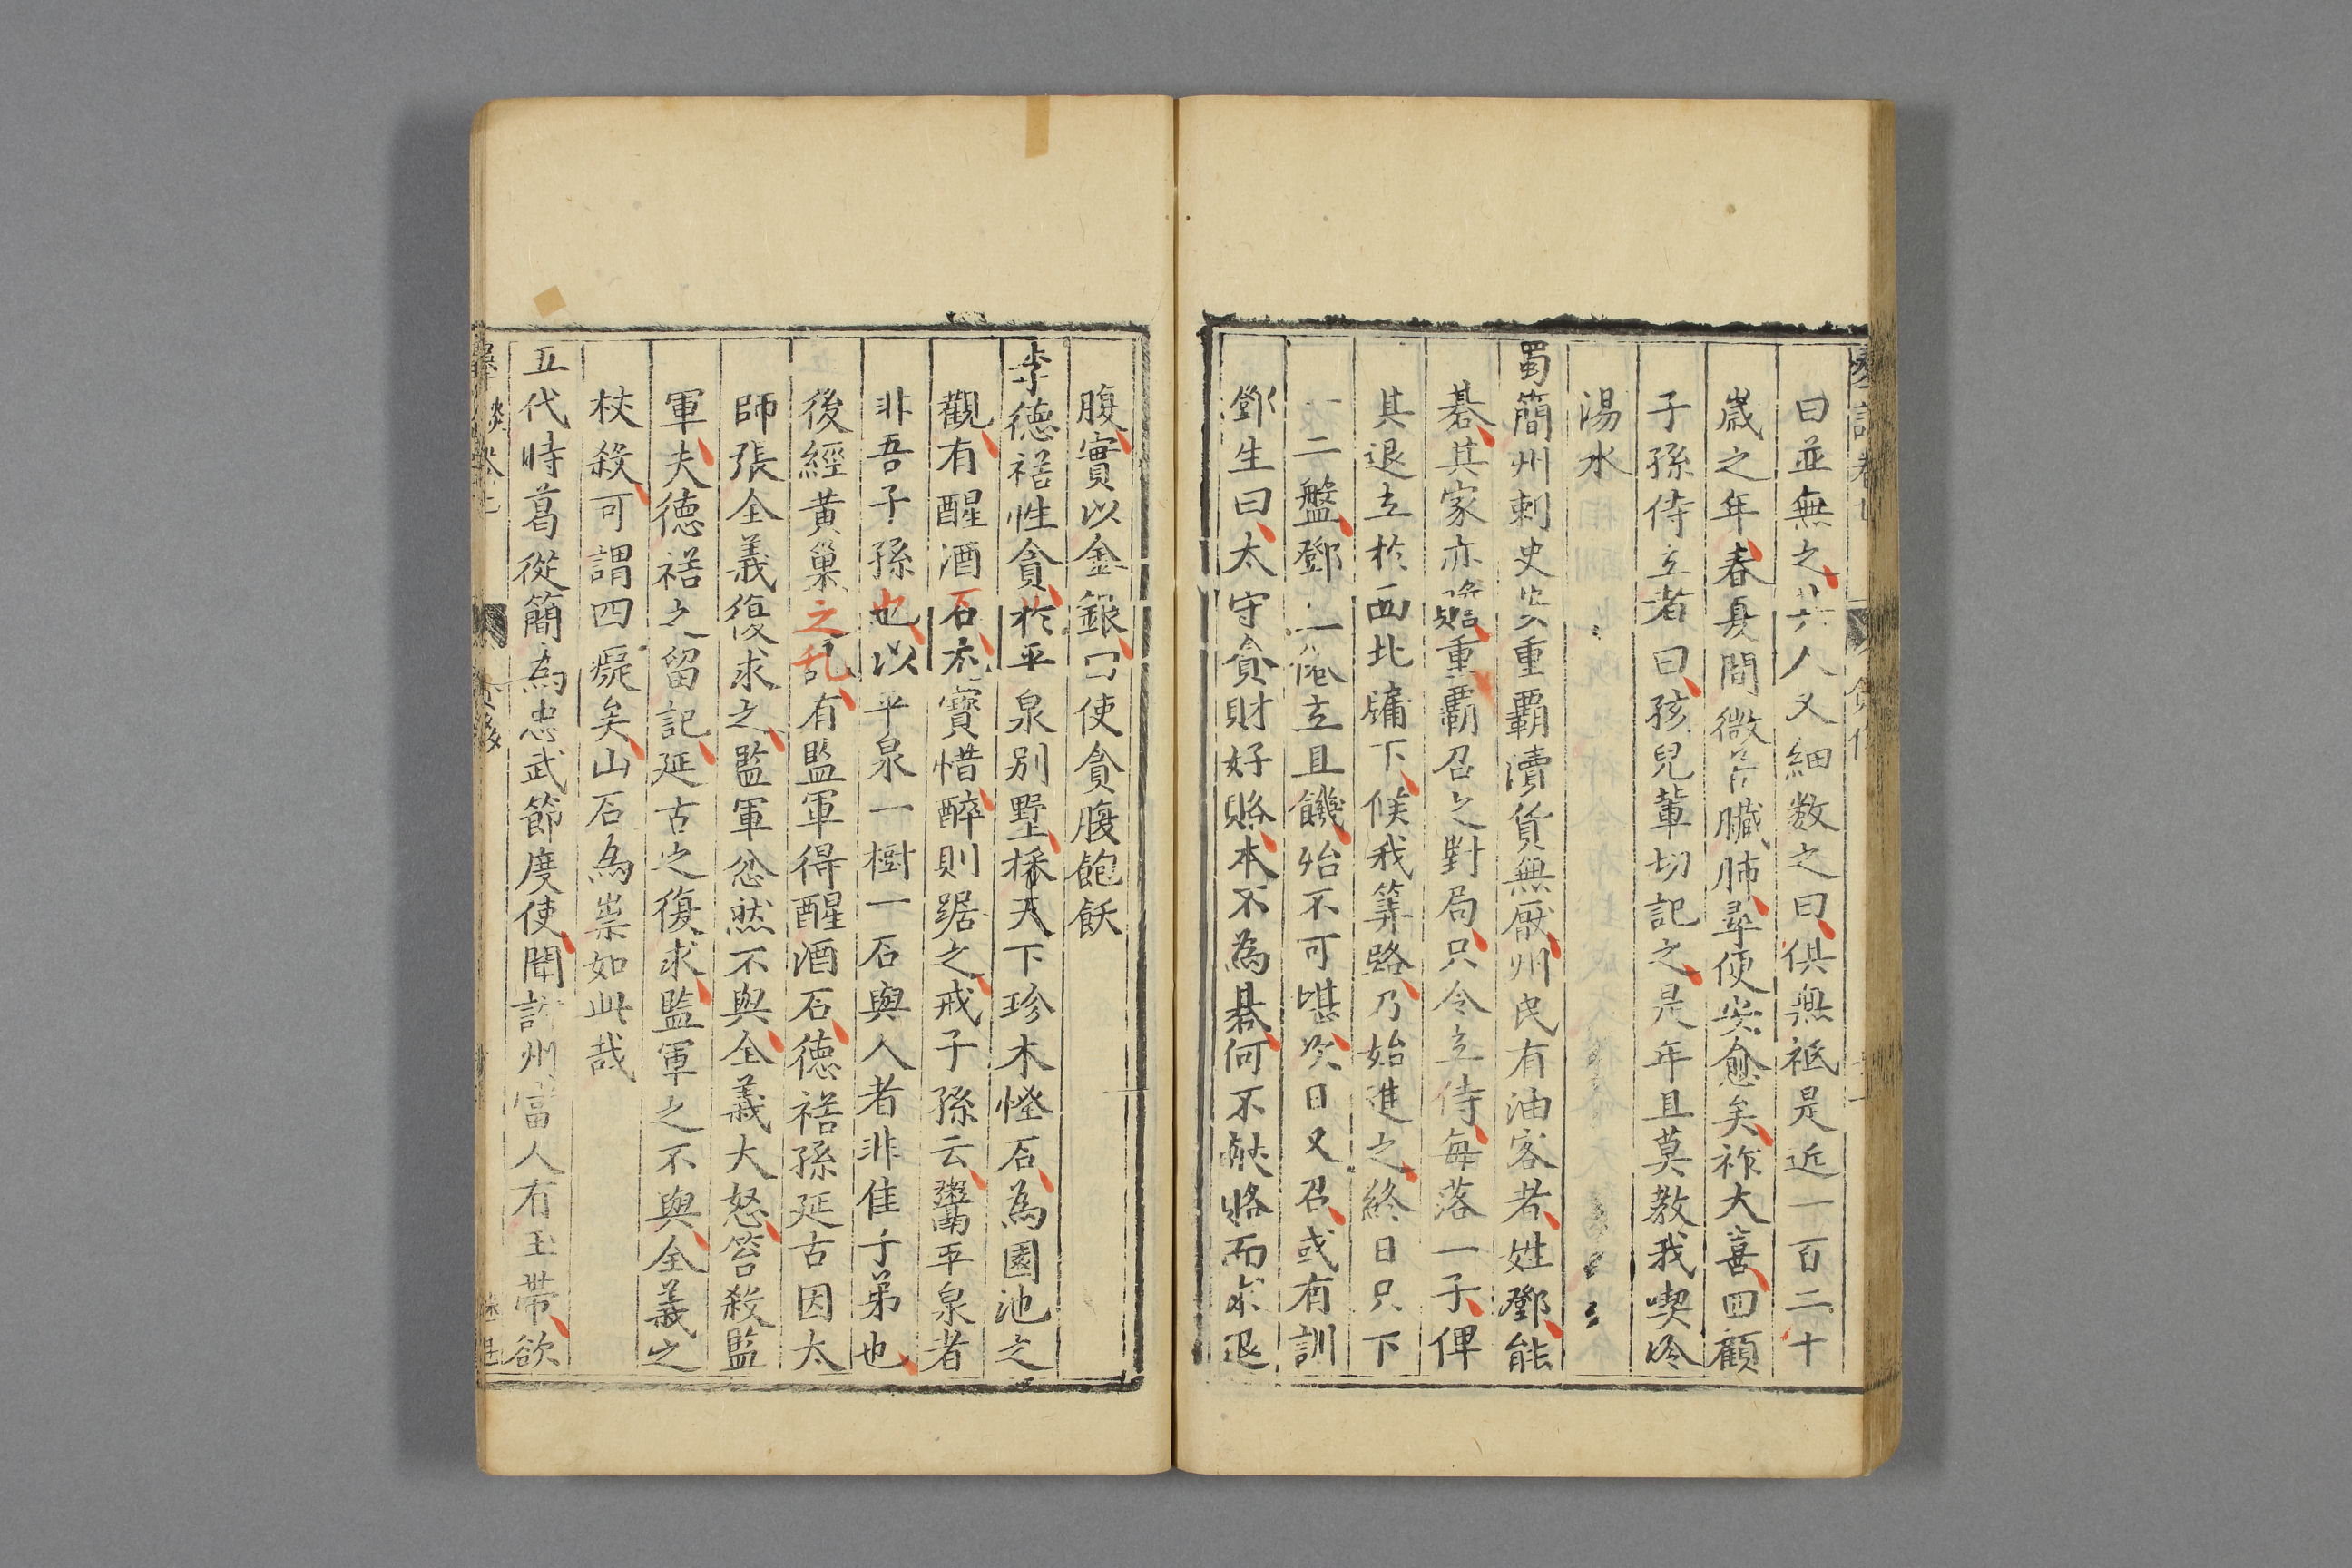 曰並無之其人又細数之曰俱無祗是近一百二十
歳之年春夏間微苦臓腑尋便安愈矣祚大喜回顧
子孫侍立者曰孩兒輩切記之是年且莫教我喫冷
湯水
蜀簡州刺史安重霸瀆貨無厭州民有油客者姓鄧能
碁其家亦贍重覇召之對局只令立侍每落一子俾
其退立於西北牖下候我筭路乃始進之終日只下
二盤鄧立且饑殆不可堪次日又召或有訓
鄧生曰太守貪財好賂本不為碁何不献賂而求退
腹實以金銀曰使貪腹飽飫
李德𥙿性貪於平泉別墅採天下珍木怪石為園池之
觀有醒酒石尤寳惜醉則踞之戒子孫云鬻平泉者
非吾子孫也以平泉一樹一石與人者非佳子弟也
後經黄巢之乱有監軍得醒酒石德𥙿孫延古因太
師張全義復求之監軍忿然不與全義大怒笞殺監
軍夫德𥙿之留記延古之復求監軍之不與全義之
杖殺可謂四癡矣山石為祟如此哉
五代時葛從簡為忠武節度使聞許州富人有玉帶欲